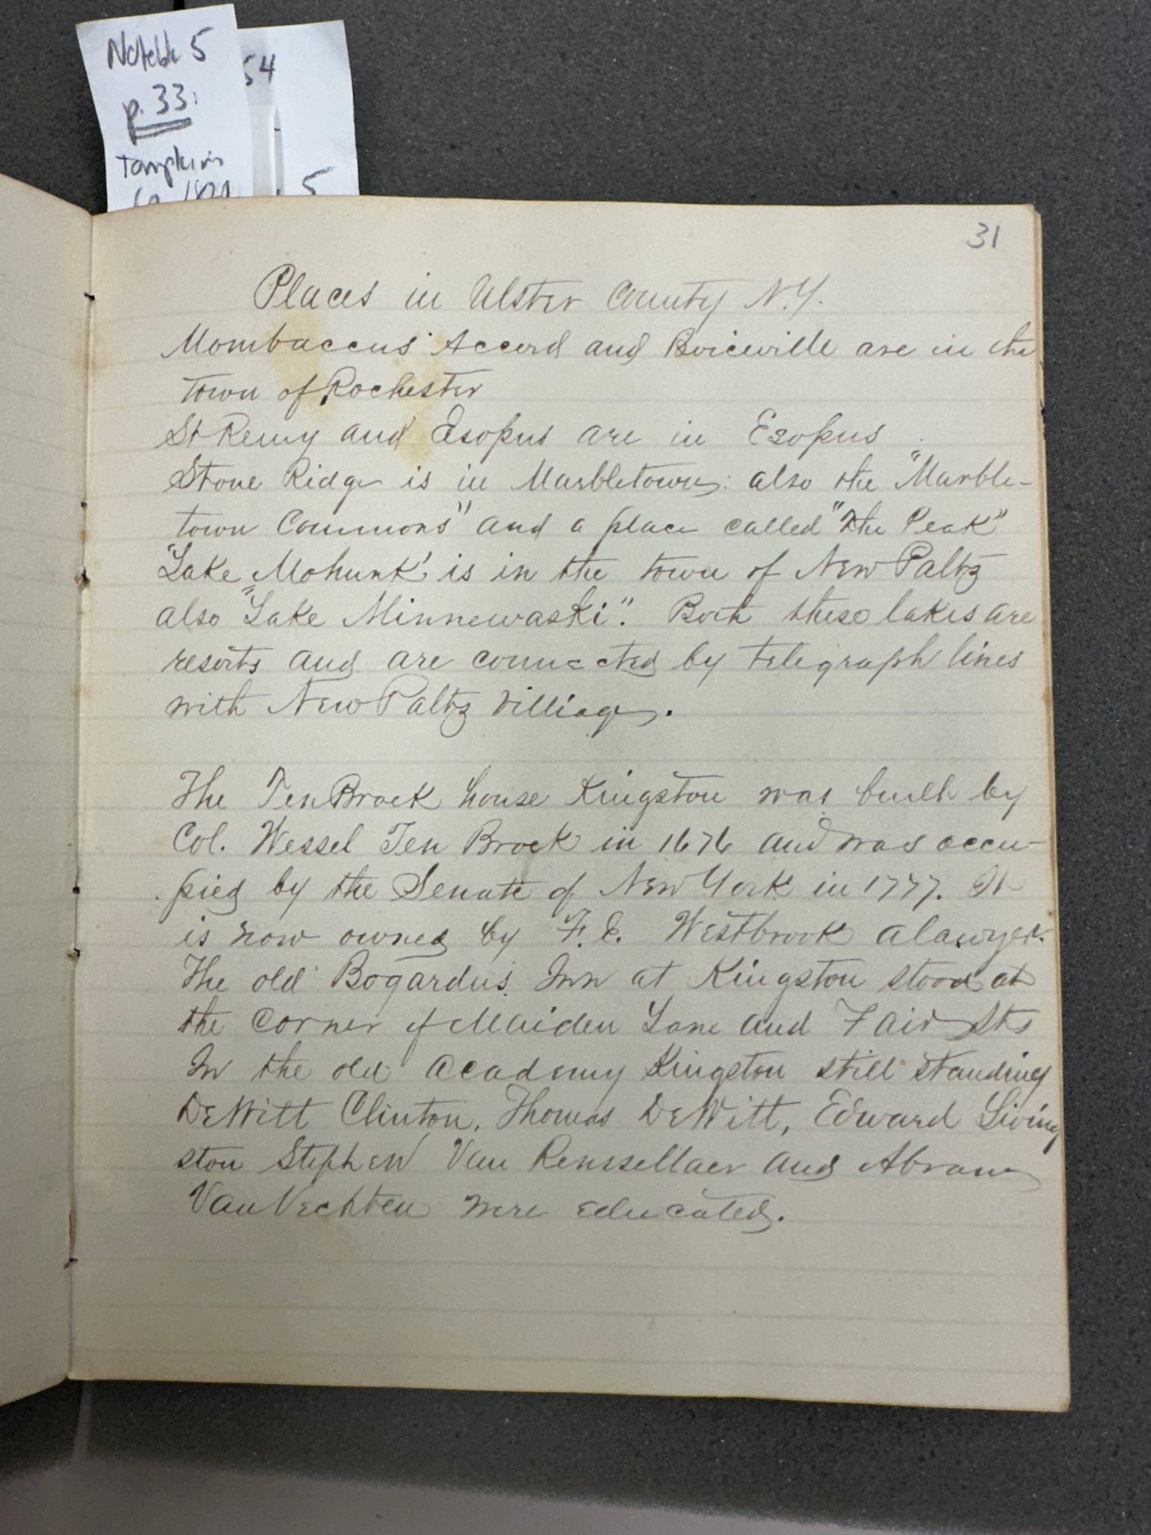 Notebk 5
p. 33:
Tompkins
Co. 1820
54
5
31
Places in Ulster County N.Y.
Mombaccus Accord and Boiceville are in the
town of Rochester
St Remy and Esopus are in Esopus
Stone Ridge is in Marbletown: also the "Marble-
town Commons" and a place called "The Peak"
"Lake Mohunk" is in the town of New Paltz
also "Lake Minnewaski". Both these lakes are
resorts and are connected by telegraph lines
with New Paltz Village.
The Ten Broek house Kingston was built by
Col. Wessel Ten Broek in 1676 and was occu-
pied by the Senate of New York in 1777. It
is now owned by F. E. Westbrook a lawyer.
The old Bogardus Inn at Kingston stood at
the corner of Maiden Lane and Fair Sts
In the old academy Kingston still standing
DeWitt Clinton, Thomas DeWitt, Edward Living
ston Stephen Van Renssellaer and Abram
Van Vechten were educated.